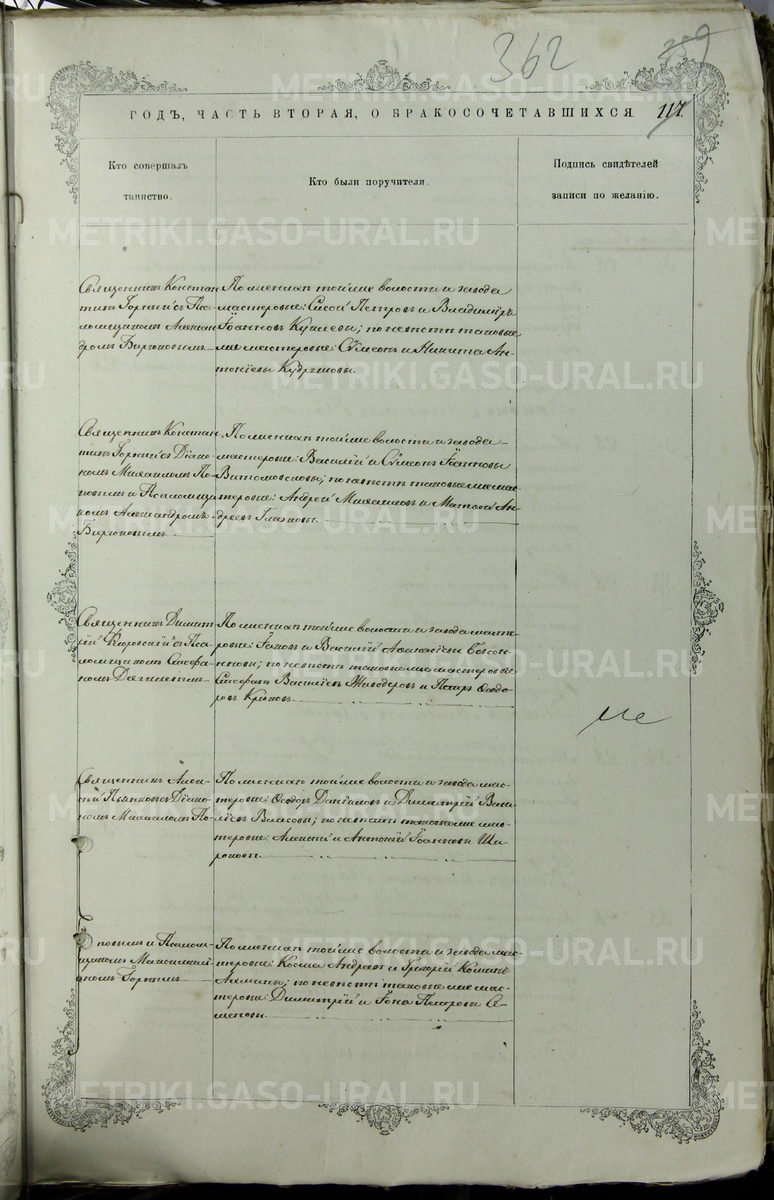 362
359
ГОДЪ, ЧАСТЬ ВТОРАЯ, О БРАКОСОЧЕТАВШИХСЯ.
117.
Кто совершалъ
таинство.
Кто были поручители.
Подпись свидѣтелей
записи по желанію.
Священникъ Констан
тинъ Горный съ Пса-
ломщикомъ Алексан
дромъ Бирюковымъ
По женихѣ той же волости и завода
мастеровые: Сысой Петровъ и Владимиръ
Іоанновъ ; по невѣстѣ таковые
же мастеровые: Сѵмеонъ и Никита Ан-
тоніевы Кудряшовы.
Священникъ Констан
тинъ Горный съ Діако-
номъ Михаиломъ По-
повымъ и Псаломщи
комъ Александромъ
Бирюковымъ
По женихѣ той же волости и завода
мастеровые: Василій и Сѵмеонъ Іоанновы
; по невѣстѣ таковые же мас
теровые: Андрей Михаиловъ и Матвей Ан
дреевъ Глазковы.
Священникъ Димит
рій съ Пса-
ломщикомъ Стефа-
номъ Дягилевымъ
По женихѣ той же волости и завода масте
ровые: Іаковъ и Василій Аѳанасіевы
; по невѣстѣ таковые же мастеровые
Стефанъ Василіевъ и Петръ Ѳеодо
ровъ Крюковъ.
Священникъ Алек-
сій Пьянковъ съ Діако-
номъ Михаиломъ По-
По женихѣ той же волости и завода мас-
теровые: Ѳеодоръ Даніиловъ и Димитрій Васи
ліевъ Власовы; по невѣстѣ таковые же мас-
теровые: Алексій и Антоній Іоанновы Ши
роковы.
повымъ и Псалом-
щикомъ Максимили
номъ Горнымъ
По женихѣ той же волости и завода мас-
теровые: Косма Андреевъ и Григорій
; по невѣстѣ таковые же мас-
теровые: Димитрій и Іона Петровы Се-
меновы.
METRIKI.GASO-URAL.RU